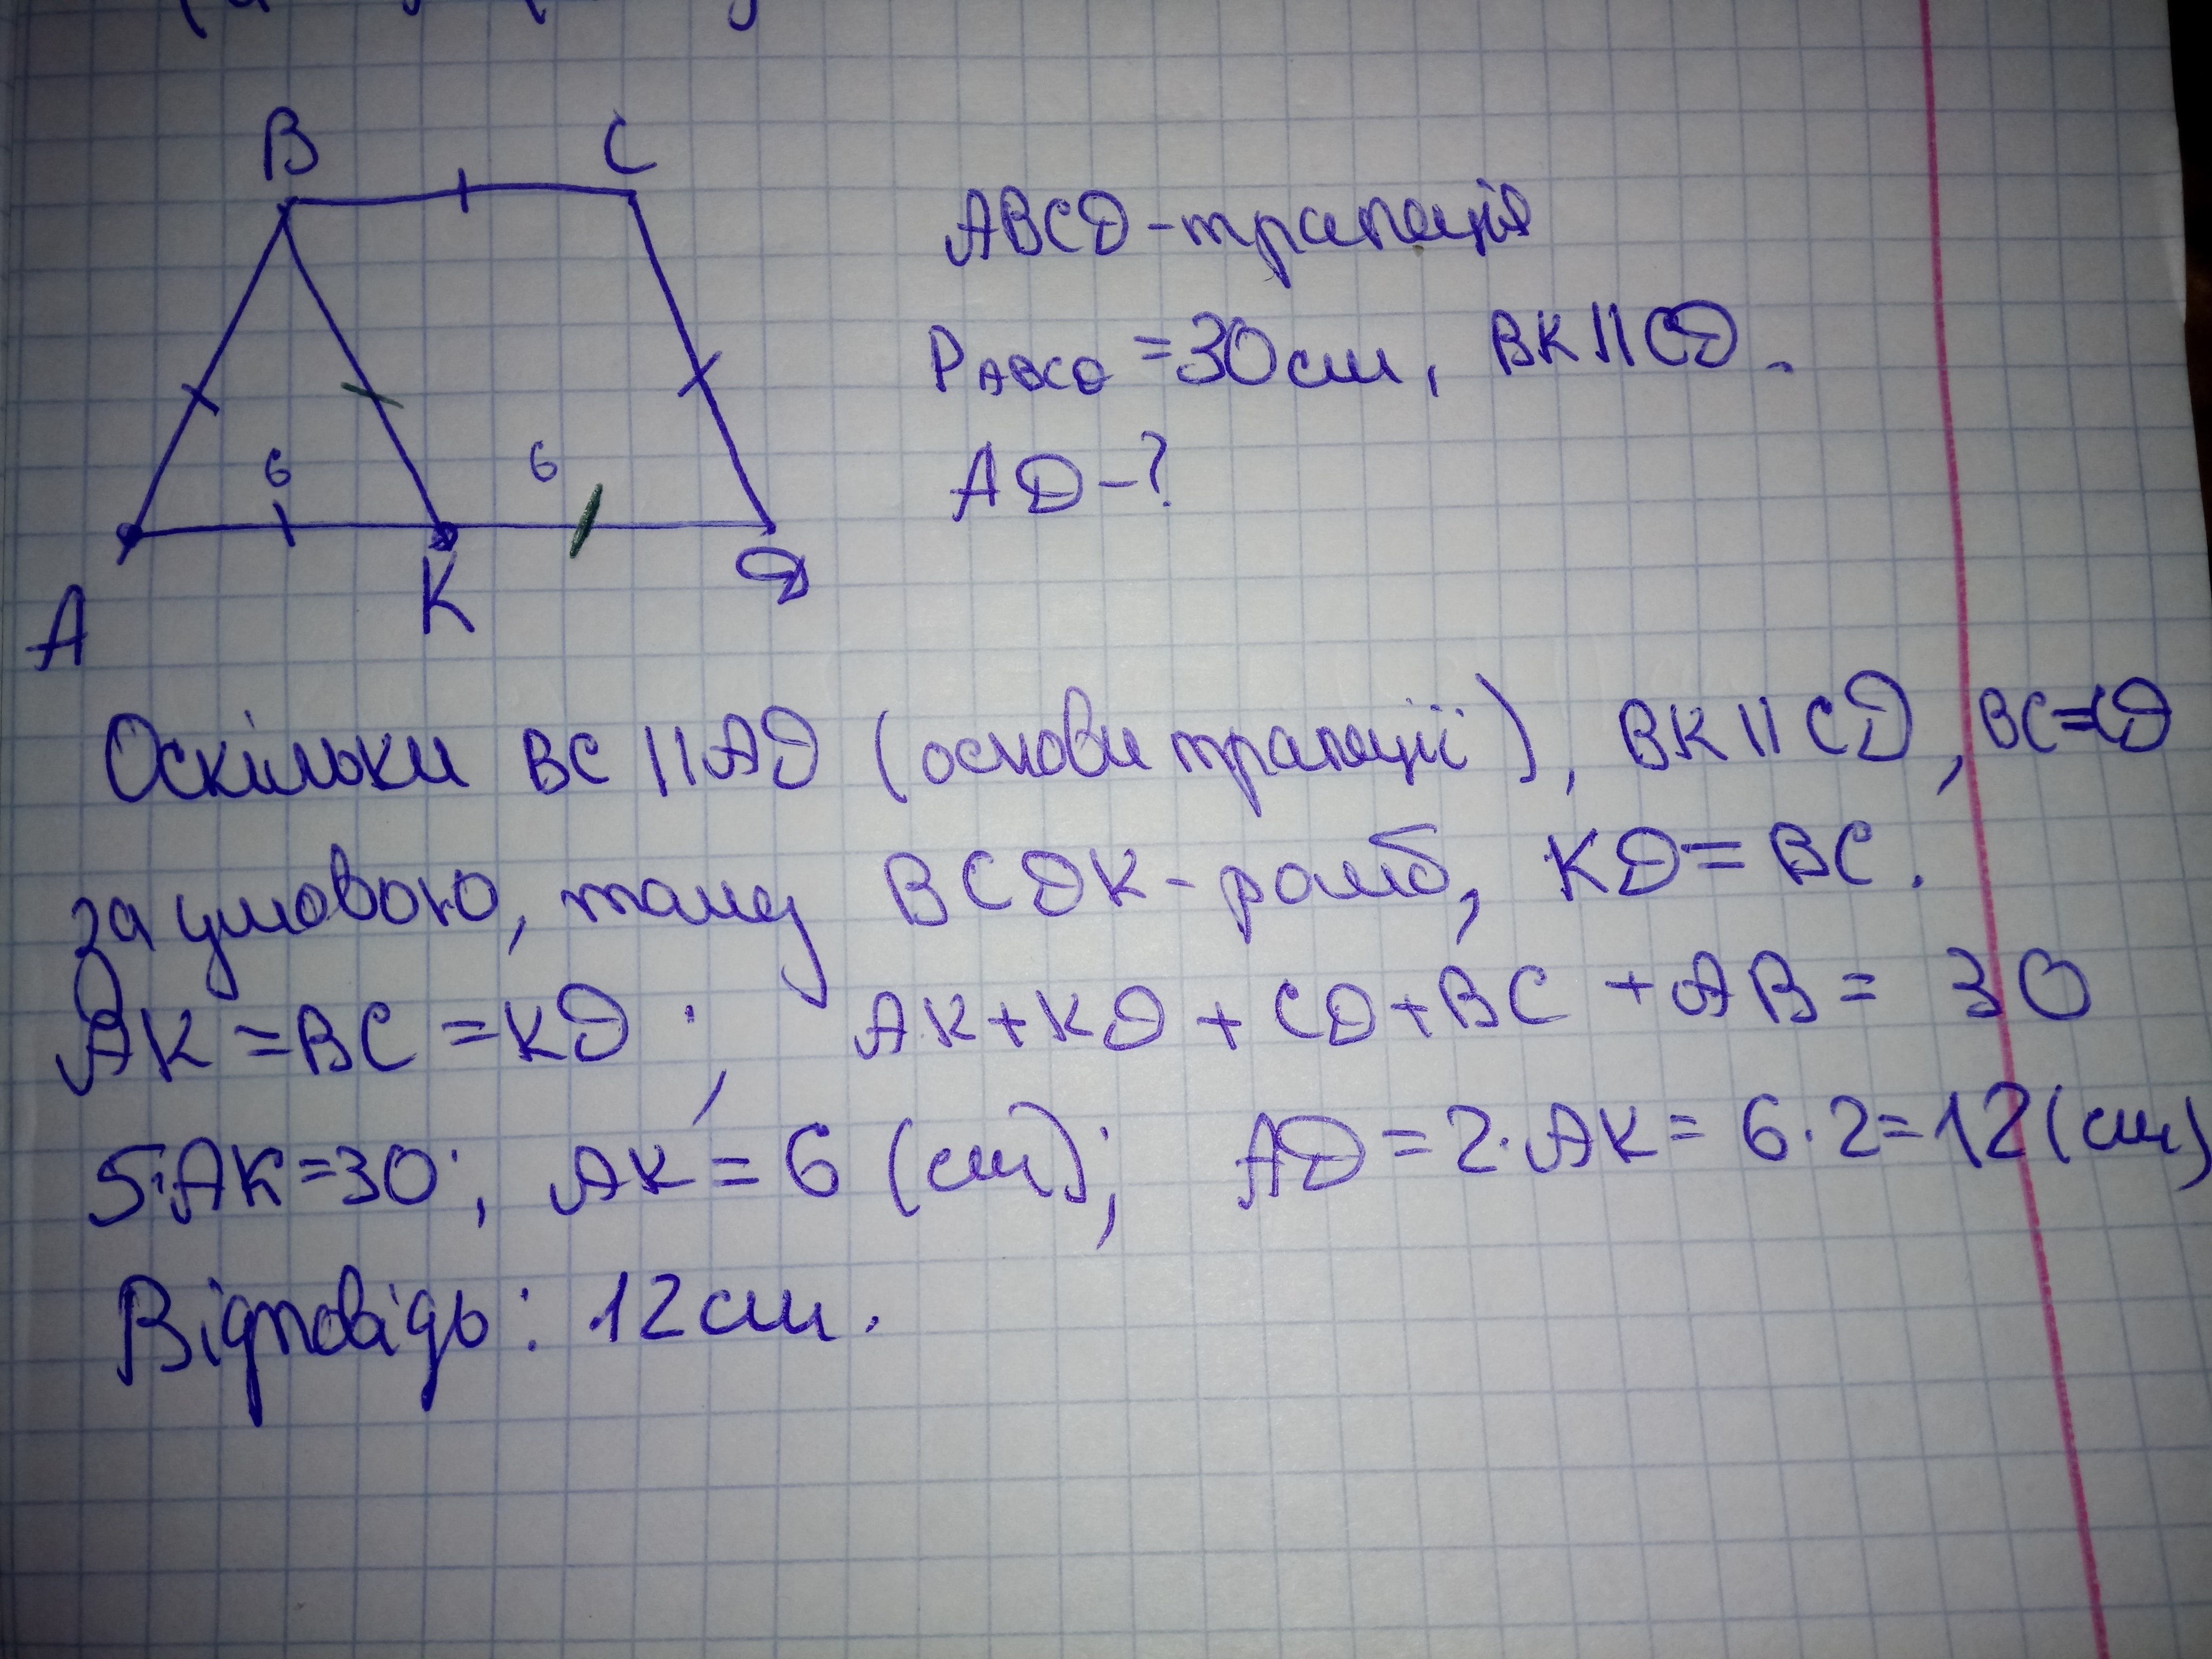 B C
ABCD - трапеція
P ABCD = 30 см, BK || CD.
6 6
AD - ?
A K D
Оскільки BC || AD (основи трапеції), BK || CD, BC = CD
за умовою, тому BCDK - ромб, KD = BC.
AK = BC = KD; AK + KD + CD + BC + AB = 30
5·AK = 30; AK = 6 (см); AD = 2·AK = 6·2 = 12 (см)
Відповідь: 12 см.